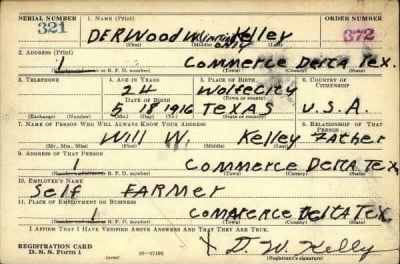 SERIAL NUMBER 1. NAME (Print) ORDER NUMBER
321 DERWOOD W (INITIAL ONLY) KELLEY 372
(First) (Middle) (Last)
2. ADDRESS (Print)
1 COMMERCE DELTA TEX.
(Number, Street or R. F. D. number) (Town) (County) (State)
3. TELEPHONE 4. AGE IN YEARS 5. PLACE OF BIRTH 6. COUNTRY OF CITIZENSHIP
24 WOLFE CITY
DATE OF BIRTH (Town or county)
5 18 1916 TEXAS U.S.A.
(Exchange) (Number) (Mo.) (Day) (Yr.) (State or country)
7. NAME OF PERSON WHO WILL ALWAYS KNOW YOUR ADDRESS 8. RELATIONSHIP OF THAT PERSON
Will W. KELLEY FATHER
(Mr., Mrs., Miss) (First) (Middle) (Last)
9. ADDRESS OF THAT PERSON
1 COMMERCE DELTA TEX
(Number, Street or R. F. D. number) (Town) (County) (State)
10. EMPLOYER'S NAME
SELF FARMER
11. PLACE OF EMPLOYMENT OR BUSINESS
1 COMMERCE DELTA TEX
(Number, Street or R. F. D. number) (Town) (County) (State)
I AFFIRM THAT I HAVE VERIFIED ABOVE ANSWERS AND THAT THEY ARE TRUE.
REGISTRATION CARD X D. W. Kelly
D. S. S. Form 1 (Registrant's signature)